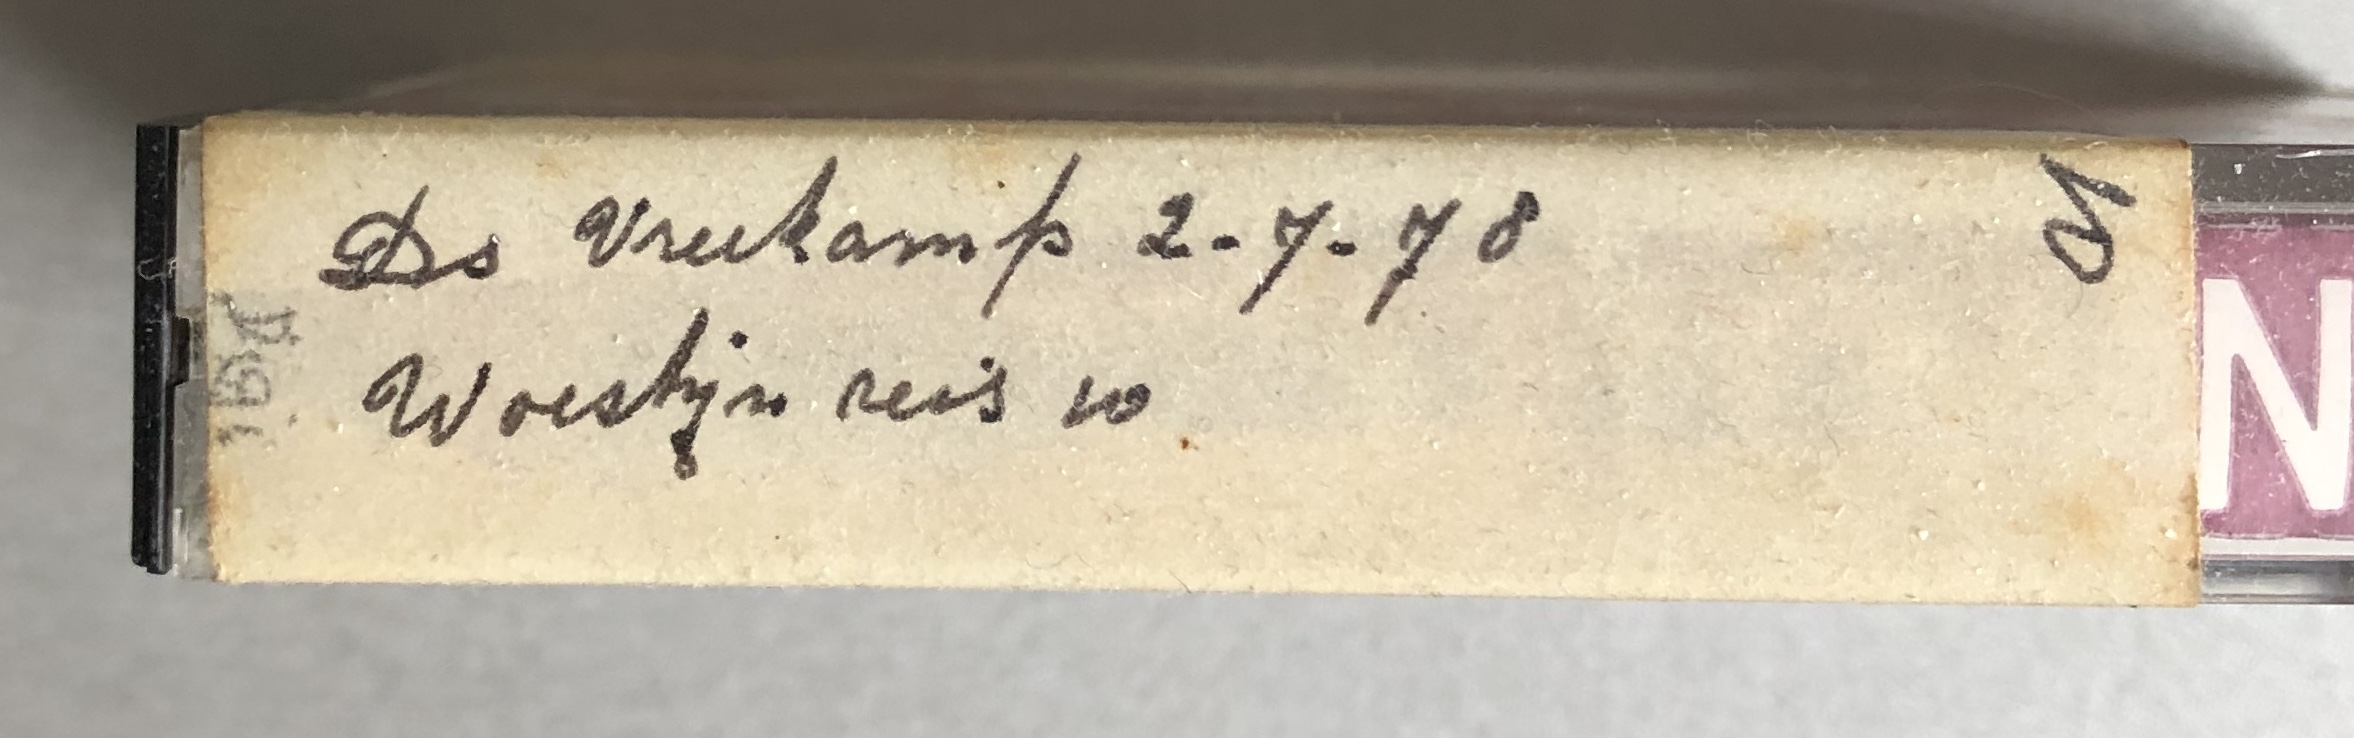 Ds Vreekamp 2-7-78
Woestijn reis 10
N